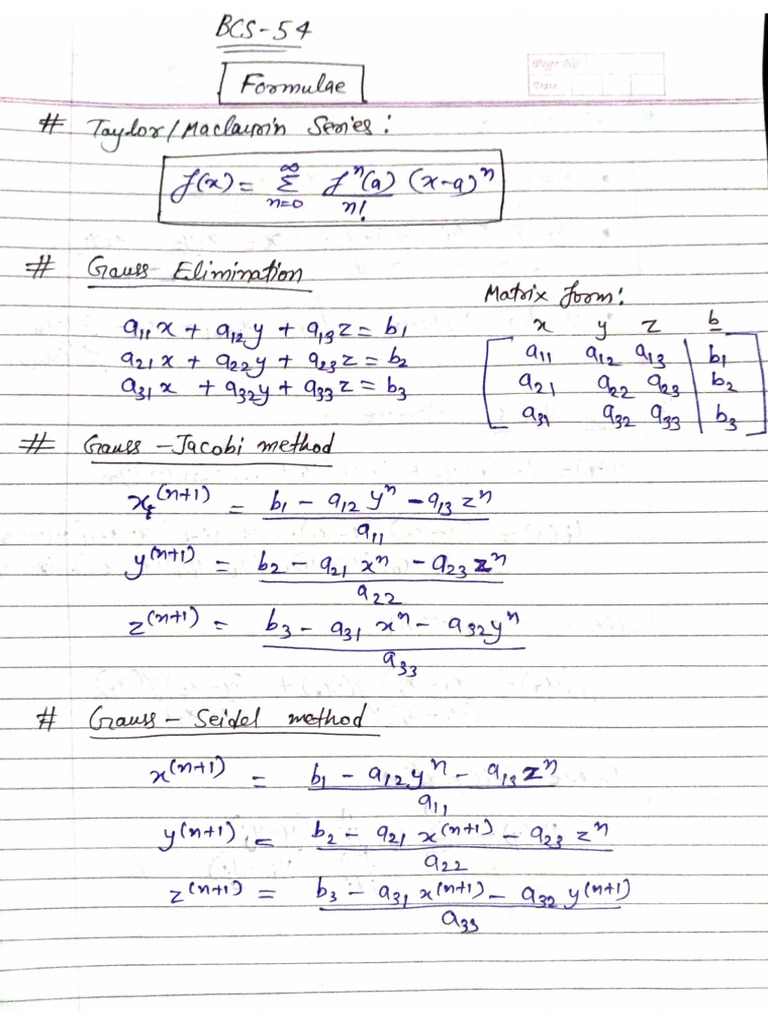 BCS-54
Page No
Date
Formulae
# Taylor/Maclaurin Series:
f(x) = ∞Σn=0 fⁿ(a)/n! (x-a)ⁿ
# Gauss Elimination
Matrix form:
x y z b
a₁₁x + a₁₂y + a₁₃z = b₁
a₂₁x + a₂₂y + a₂₃z = b₂
a₃₁x + a₃₂y + a₃₃z = b₃
a₁₁ a₁₂ a₁₃ | b₁
a₂₁ a₂₂ a₂₃ | b₂
a₃₁ a₃₂ a₃₃ | b₃
# Gauss-Jacobi method
x⁽ⁿ⁺¹⁾ = (b₁ - a₁₂yⁿ - a₁₃zⁿ)/a₁₁
y⁽ⁿ⁺¹⁾ = (b₂ - a₂₁xⁿ - a₂₃zⁿ)/a₂₂
z⁽ⁿ⁺¹⁾ = (b₃ - a₃₁xⁿ - a₃₂yⁿ)/a₃₃
# Gauss-Seidel method
x⁽ⁿ⁺¹⁾ = (b₁ - a₁₂yⁿ - a₁₃zⁿ)/a₁₁
y⁽ⁿ⁺¹⁾ = (b₂ - a₂₁x⁽ⁿ⁺¹⁾ - a₂₃zⁿ)/a₂₂
z⁽ⁿ⁺¹⁾ = (b₃ - a₃₁x⁽ⁿ⁺¹⁾ - a₃₂y⁽ⁿ⁺¹⁾)/a₃₃